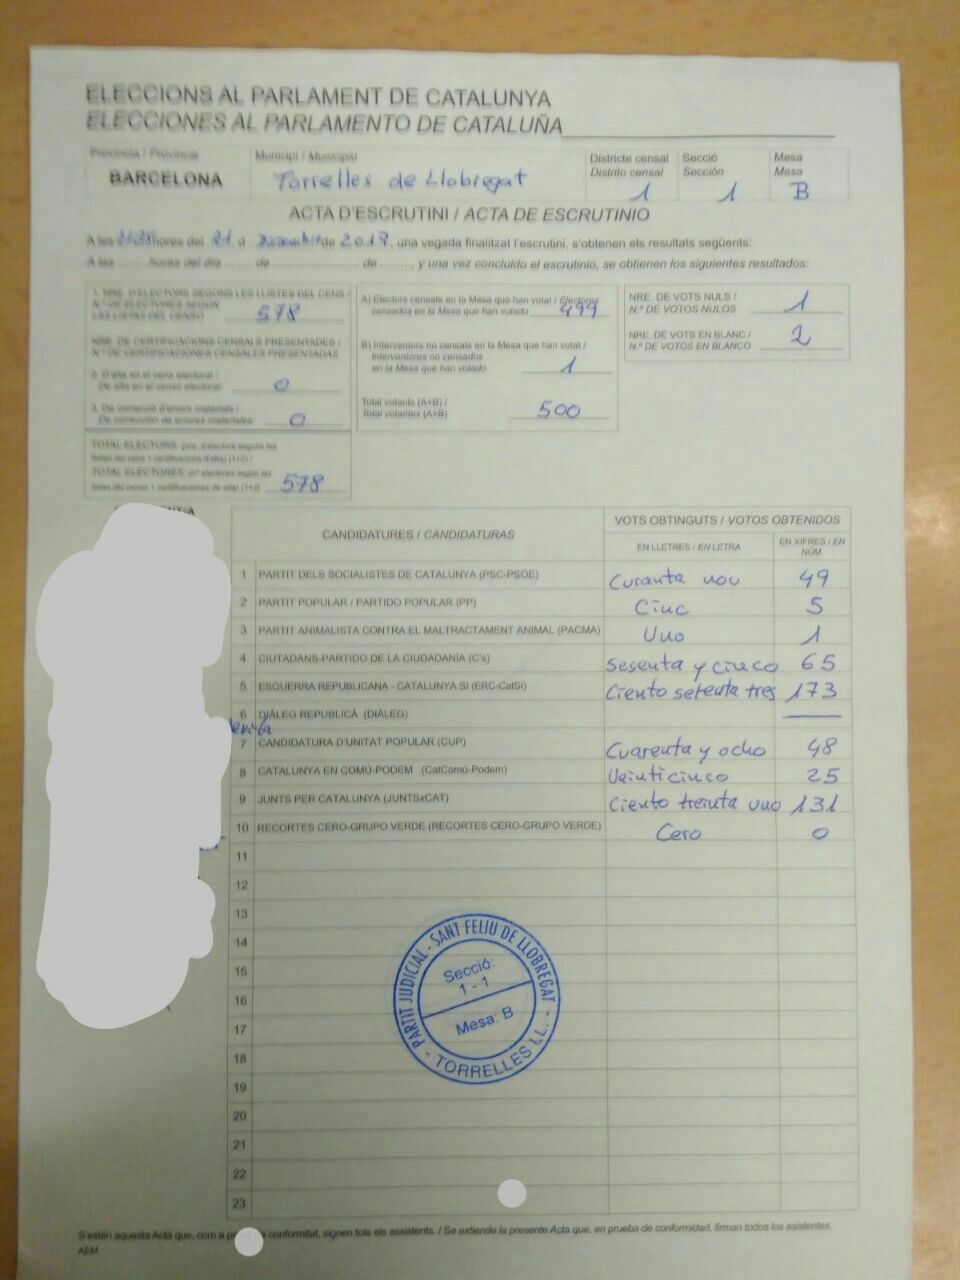 ELECCIONS AL PARLAMENT DE CATALUNYA
ELECCIONES AL PARLAMENTO DE CATALUÑA
Província / Provincia
Municipi / Municipio
Districte censal
Distrito censal
Secció
Sección
Mesa
Mesa
BARCELONA Torrelles de Llobregat 1 1 B
ACTA D'ESCRUTINI / ACTA DE ESCRUTINIO
A les hores del 21 d de 2017, una vegada finalitzat l'escrutini, s'obtenen els resultats següents:
A las horas del día de de , y una vez concluido el escrutinio, se obtienen los siguientes resultados:
1. NRE. D'ELECTORS SEGONS LES LLISTES DEL CENS /
N.º DE ELECTORES SEGÚN
LAS LISTAS DEL CENSO 578
NRE. DE CERTIFICACIONS CENSALS PRESENTADES /
N.º DE CERTIFICACIONES CENSALES PRESENTADAS
2. D'alta en el cens electoral /
De alta en el censo electoral 0
3. De correcció d'errors materials /
De corrección de errores materiales 0
TOTAL ELECTORS: (nre. d'electors segons les
llistes del cens + certificacions d'alta) (1+2) /
TOTAL ELECTORES: (nº electores según las
listas del censo + certificaciones de alta) (1+2) 578
A) Electors censats en la Mesa que han votat / Electores
censados en la Mesa que han votado 499
B) Interventors no censats en la Mesa que han votat /
Interventores no censados
en la Mesa que han votado 1
Total votants (A+B) /
Total votantes (A+B) 500
NRE. DE VOTS NULS /
N.º DE VOTOS NULOS 1
NRE. DE VOTS EN BLANC /
N.º DE VOTOS EN BLANCO 2
CANDIDATURES / CANDIDATURAS
VOTS OBTINGUTS / VOTOS OBTENIDOS
EN LLETRES / EN LETRA
EN XIFRES / EN
NÚM.
1 PARTIT DELS SOCIALISTES DE CATALUNYA (PSC-PSOE) Curanta nou 49
2 PARTIT POPULAR / PARTIDO POPULAR (PP) Cinc 5
3 PARTIT ANIMALISTA CONTRA EL MALTRACTAMENT ANIMAL (PACMA) Uno 1
4 CIUTADANS-PARTIDO DE LA CIUDADANÍA (C's) Sesenta y cinco 65
5 ESQUERRA REPUBLICANA - CATALUNYA SÍ (ERC-CatSí) Ciento setenta tres 173
6 DIÀLEG REPUBLICÀ (DIÀLEG)
7 CANDIDATURA D'UNITAT POPULAR (CUP) Cuarenta y ocho 48
8 CATALUNYA EN COMÚ-PODEM (CatComú-Podem) Veinticinco 25
9 JUNTS PER CATALUNYA (JUNTSxCAT) Ciento treinta uno 131
10 RECORTES CERO-GRUPO VERDE (RECORTES CERO-GRUPO VERDE) Cero 0
11
12
13
14
15
16
17
18
19
20
21
22
23
PARTIT JUDICIAL - SANT FELIU DE LLOBREGAT - TORRELLES LL. -
Secció:
1 - 1
Mesa: B
S'estén aquesta Acta que, com a conformitat, signen tots els assistents. / Se extiende la presente Acta que, en prueba de conformidad, firman todos los asistentes.
AEM